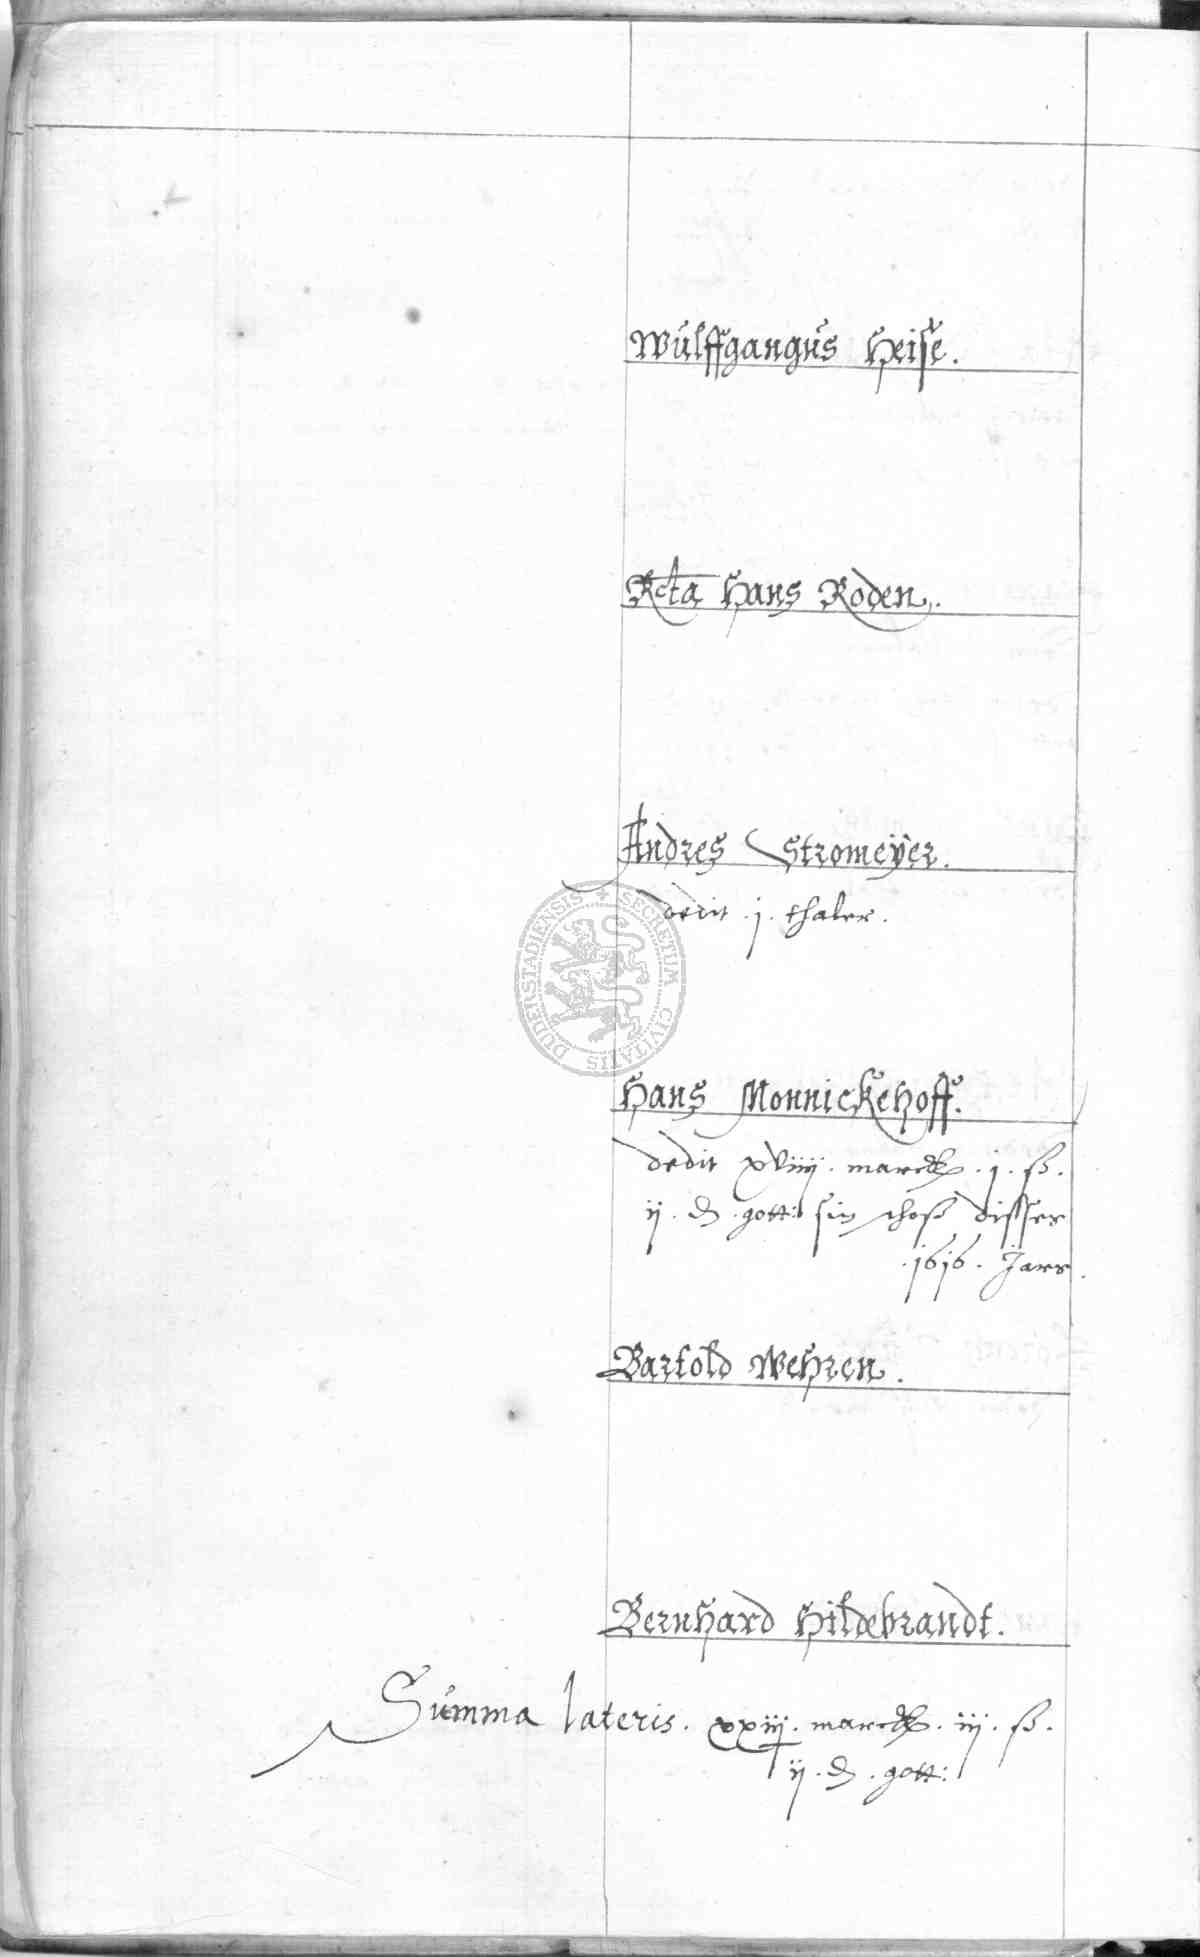 Wulffgangus Heise.
Rcta Hans Roden.
Andres Stromeÿer.
dedit .j. thaler.
SECRETUM CIVITATIS DUDERSTADIENSIS
Hans Monnickehoff.
dedit xviiij. marck .j. ß.
ij. ₰. gott: sin schoß disser
.1616. Jarr.
Bartold Wehren.
Bernhard Hildebrandt.
Summa lateris. xxiij. marck. iij. ß.
ij. ₰. gott: